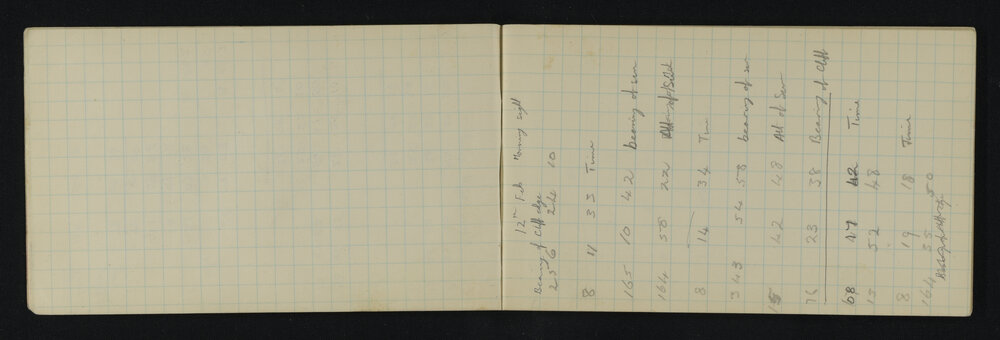 12th Feb Morning sight
Bearing of Cliff edge
256 24 10
8 11 33 Time
165 10 42 bearing of sun
164 50 22
8 14 34 Time
343 54 58 bearing of sun
15 42 48 Alt of Sun
76 23 38 Bearing of Cliff
68 47 42 Time
15 52 48
8 19 18 Time
164 35 50